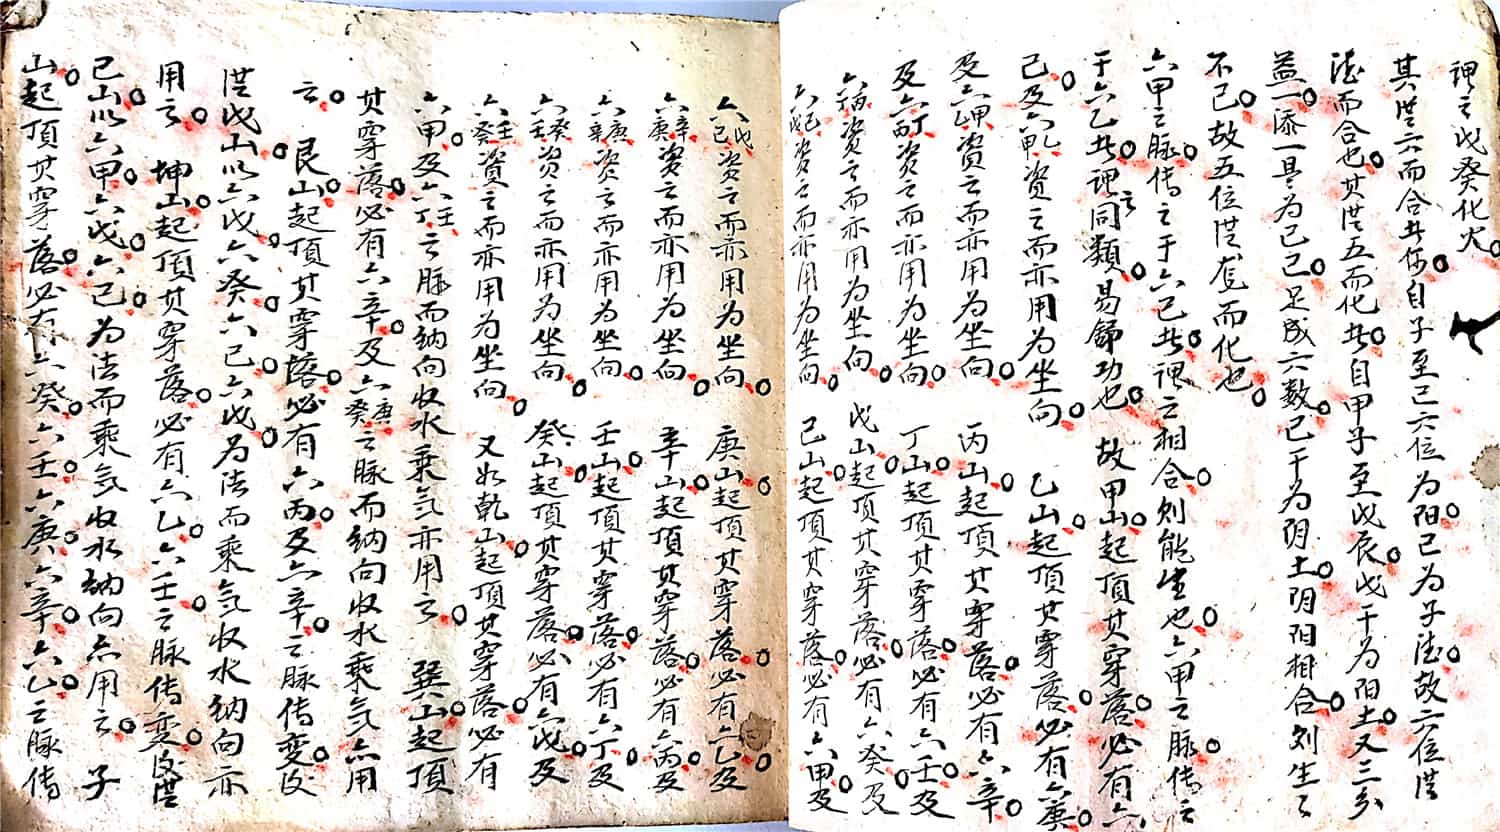 理之戊癸化火
其遁六而合者你自子至己六位为阳己为子陆故六位遁
陆而合也其遁五而化者自甲子至戊辰戊干为阳土又三多
益一添一是为己己足成六数己干为阴土阴阳相合则生之
不已故五位遁覔而化也
六甲之脉传之于六己者理之相合则能生也六甲之脉传之
于六乙者理之同类易歸功也 故甲山起頂其穿落必有六
己及六甲乙资之而亦用为坐向 乙山起頂其穿落必有六庚
及六甲资之而亦用为坐向 丙山起頂其穿落必有六辛
及六丙丁资之而亦用为坐向 丁山起頂其穿落必有六壬及
六丙资之而亦用为坐向 戊山起頂其穿落必有六癸及
六戊己资之而亦用为坐向 己山起頂其穿落必有六甲及
六戊己资之而亦用为坐向 庚山起頂其穿落必有六乙及
六辛庚资之而亦用为坐向 辛山起頂其穿落必有六丙及
六庚辛资之而亦用为坐向 壬山起頂其穿落必有六丁及
六癸壬资之而亦用为坐向 癸山起頂其穿落必有六戊及
六壬癸资之而亦用为坐向 又如乾山起頂其穿落必有
六甲及六壬之脉而纳向收水乘气亦用之 巽山起頂
其穿落必有六辛及六庚癸之脉而纳向收水乘气亦用
之 艮山起頂其穿落必有六丙及六辛之脉传变及
遁戊山以六戊六癸六己六戊为法而乘气收水纳向亦
用之 坤山起頂其穿落必有六乙六壬之脉传变及遁
己山以六甲六戊六己为法而乘气收水纳向亦用之 子
山起頂其穿落必有六癸六壬六庚六辛六乙之脉传